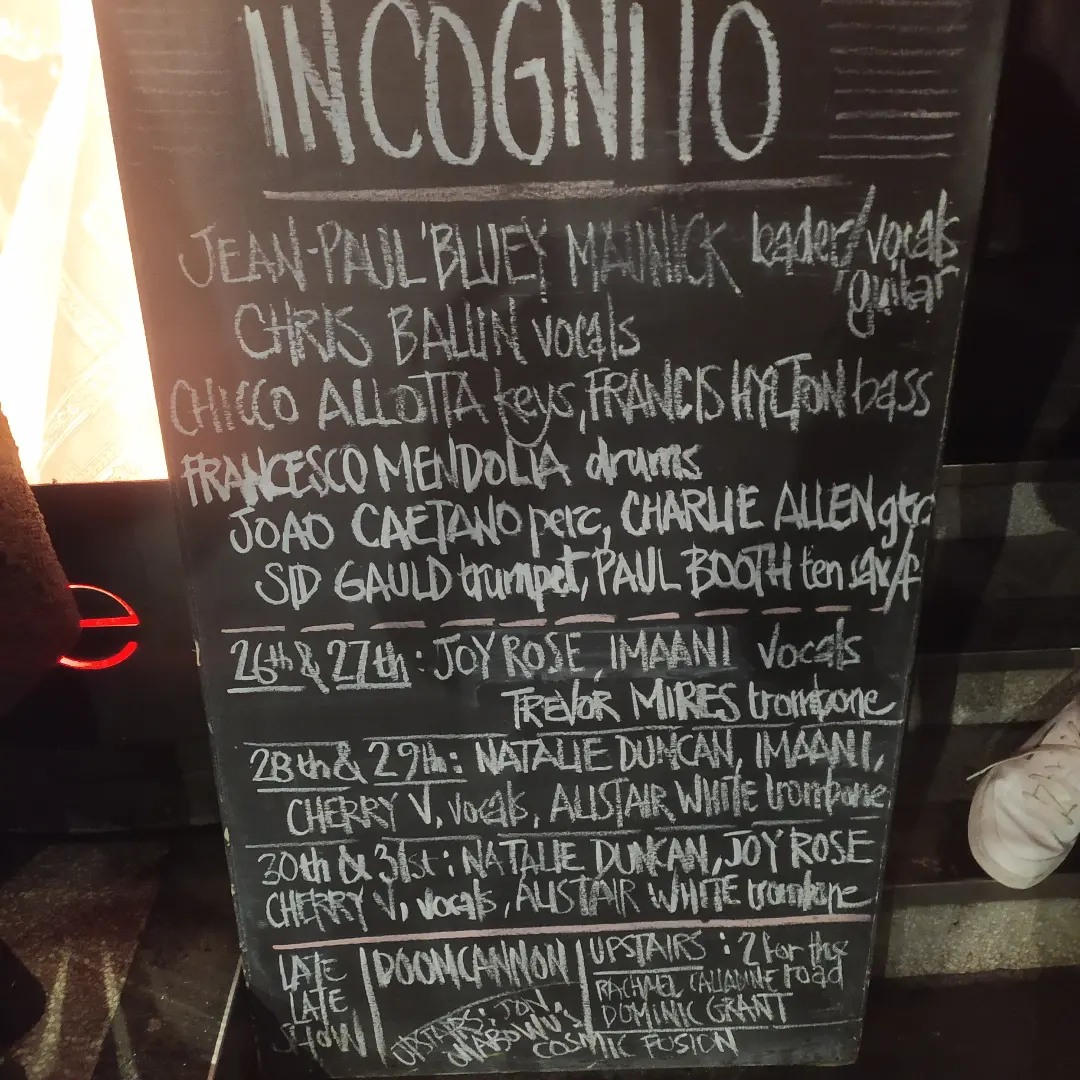 INCOGNITO
JEAN-PAUL 'BLUEY' MAUNICK leader/vocals
guitar
CHRIS BALLIN vocals
CHICCO ALLOTTA keys, FRANCIS HYLTON bass
FRANCESCO MENDOLIA drums
JOAO CAETANO perc, CHARLIE ALLEN gtr
SID GAULD trumpet, PAUL BOOTH ten sax/f
26th & 27th: JOY ROSE, IMAANI vocals
TREVOR MIRES trombone
28th & 29th: NATALIE DUNCAN, IMAANI,
CHERRY V, vocals, ALISTAIR WHITE trombone
30th & 31st: NATALIE DUNCAN, JOY ROSE
CHERRY V, vocals, ALISTAIR WHITE trombone
LATE
LATE
SHOW
DOOMCANNON
UPSTAIRS:
COSMIC FUSION
UPSTAIRS: 2 for the
road
DOMINIC GRANT
e